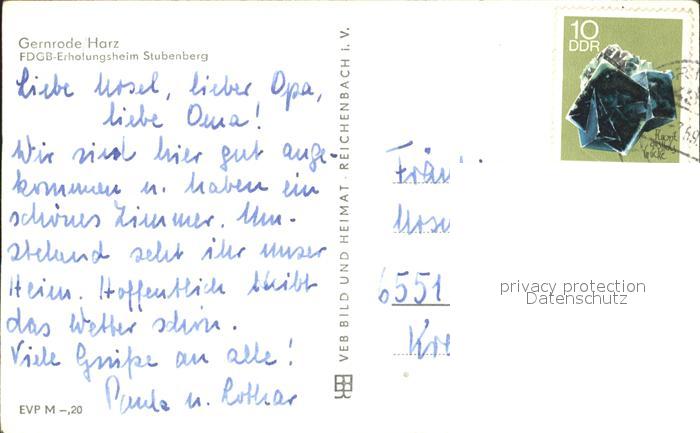 Gernrode Harz
FDGB-Erholungsheim Stubenberg
Liebe Rosel, lieber Opa,
liebe Oma!
Wir sind hier gut ange-
kommen u. haben ein
schönes Zimmer. Um-
stehend seht ihr unser
Heim. Hoffentlich bleibt
das Wetter schön.
Viele Grüße an alle!
Paula u. Lothar
EVP M -,20
VEB BILD UND HEIMAT · REICHENBACH i. V.
10
DDR
Fräu
6551
Kre
privacy protection
Datenschutz